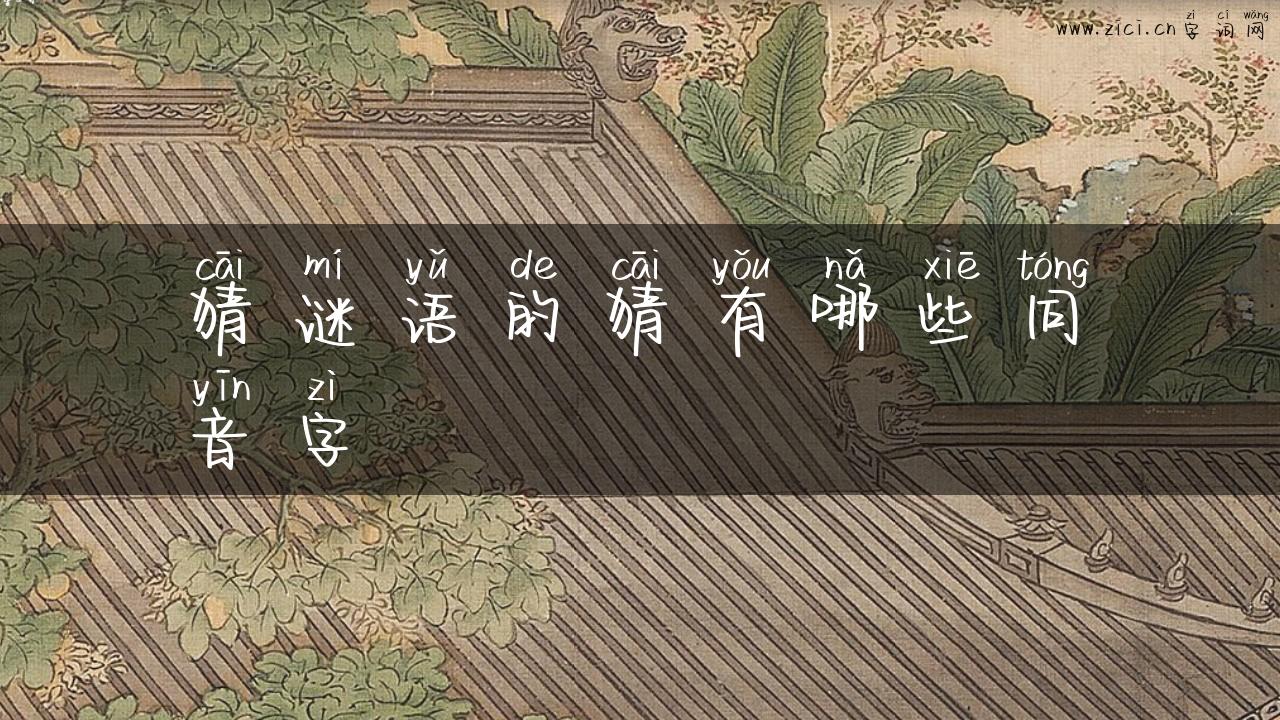 zì cí wǎng
www.zici.cn 字 词 网
cāi mí yǔ de cāi yǒu nǎ xiē tóng
猜 谜 语 的 猜 有 哪 些 同
yīn zì
音 字